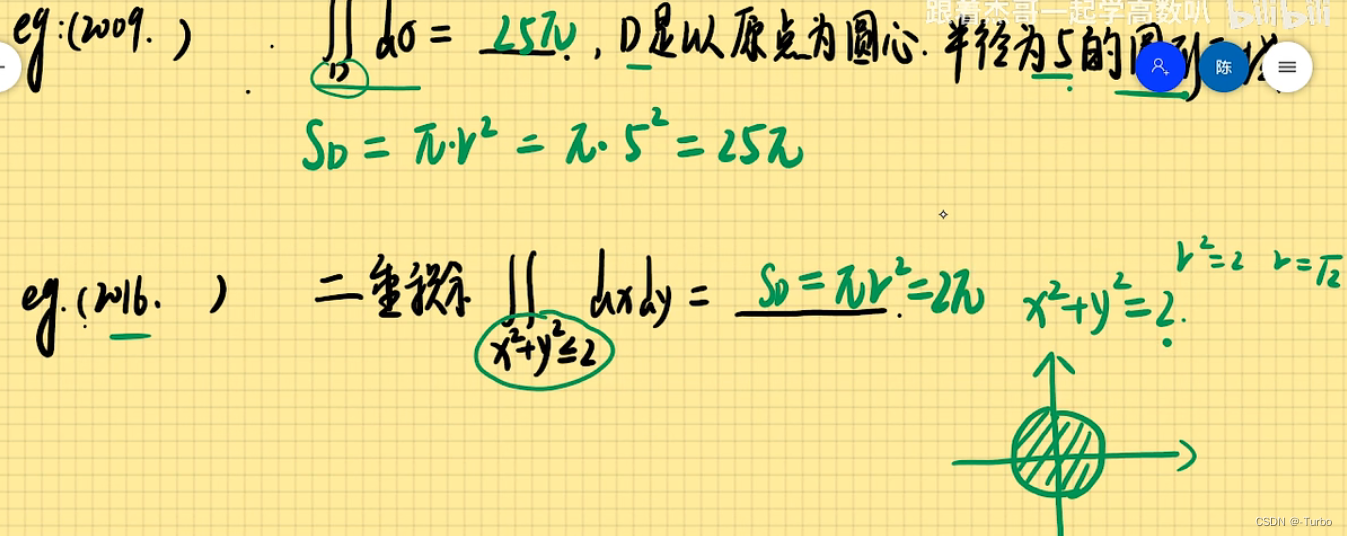 跟着杰哥一起学高数叭 bilibili
eg:(2009. ) ∬_D dσ = 25π, D是以原点为圆心. 半径为5的
陈
S_D = π·r² = π·5² = 25π
r²=2 r=√2
eg.(2016. ) 二重积分 ∬_{x²+y²≤2} dxdy = S_D = πr² = 2π. x²+y²=2.
CSDN @-Turbo